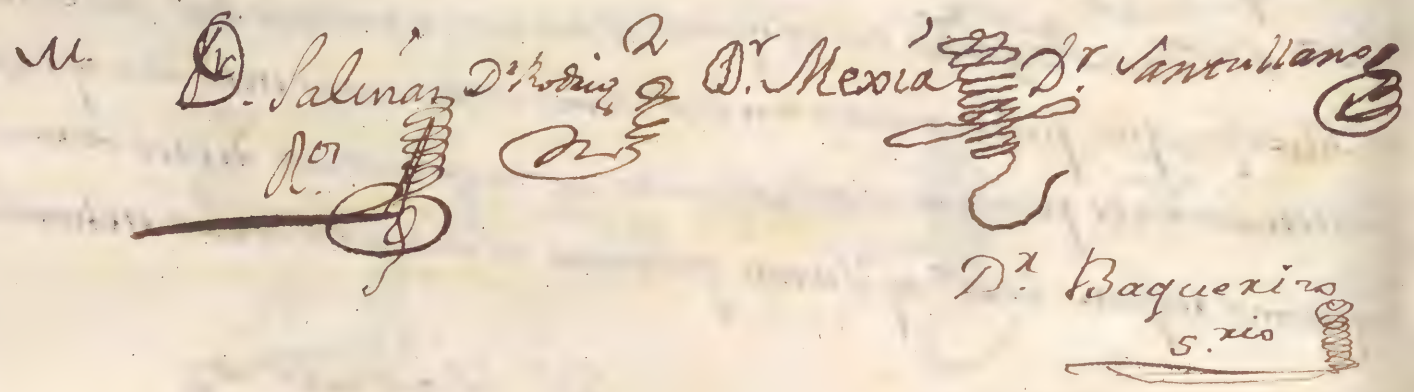 M. Dr. Salinas Dr. Rodrig.z Dr. Mexía Dr. Santullano
R.or
Dr. Baqueriro
s.rio